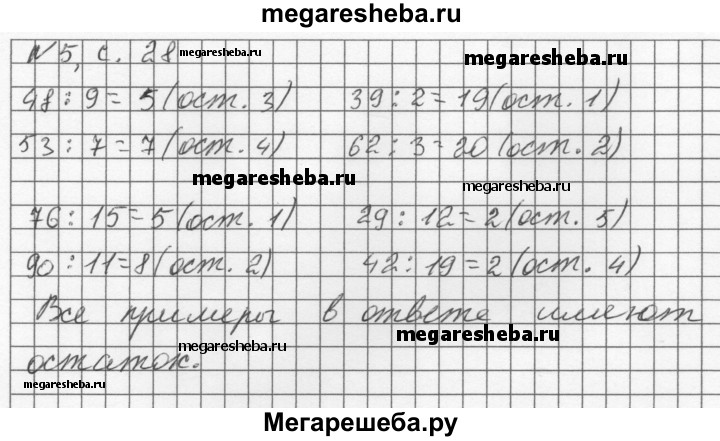 megaresheba.ru
№5, с. 28 megaresheba.ru megaresheba.ru
48 : 9 = 5 (ост. 3) 39 : 2 = 19 (ост. 1)
53 : 7 = 7 (ост. 4) 62 : 3 = 20 (ост. 2)
megaresheba.ru megaresheba.ru
76 : 15 = 5 (ост. 1) 29 : 12 = 2 (ост. 5)
90 : 11 = 8 (ост. 2) 42 : 19 = 2 (ост. 4)
Все примеры в ответе имеют
megaresheba.ru megaresheba.ru
остаток.
megaresheba.ru
Мегарешеба.ру